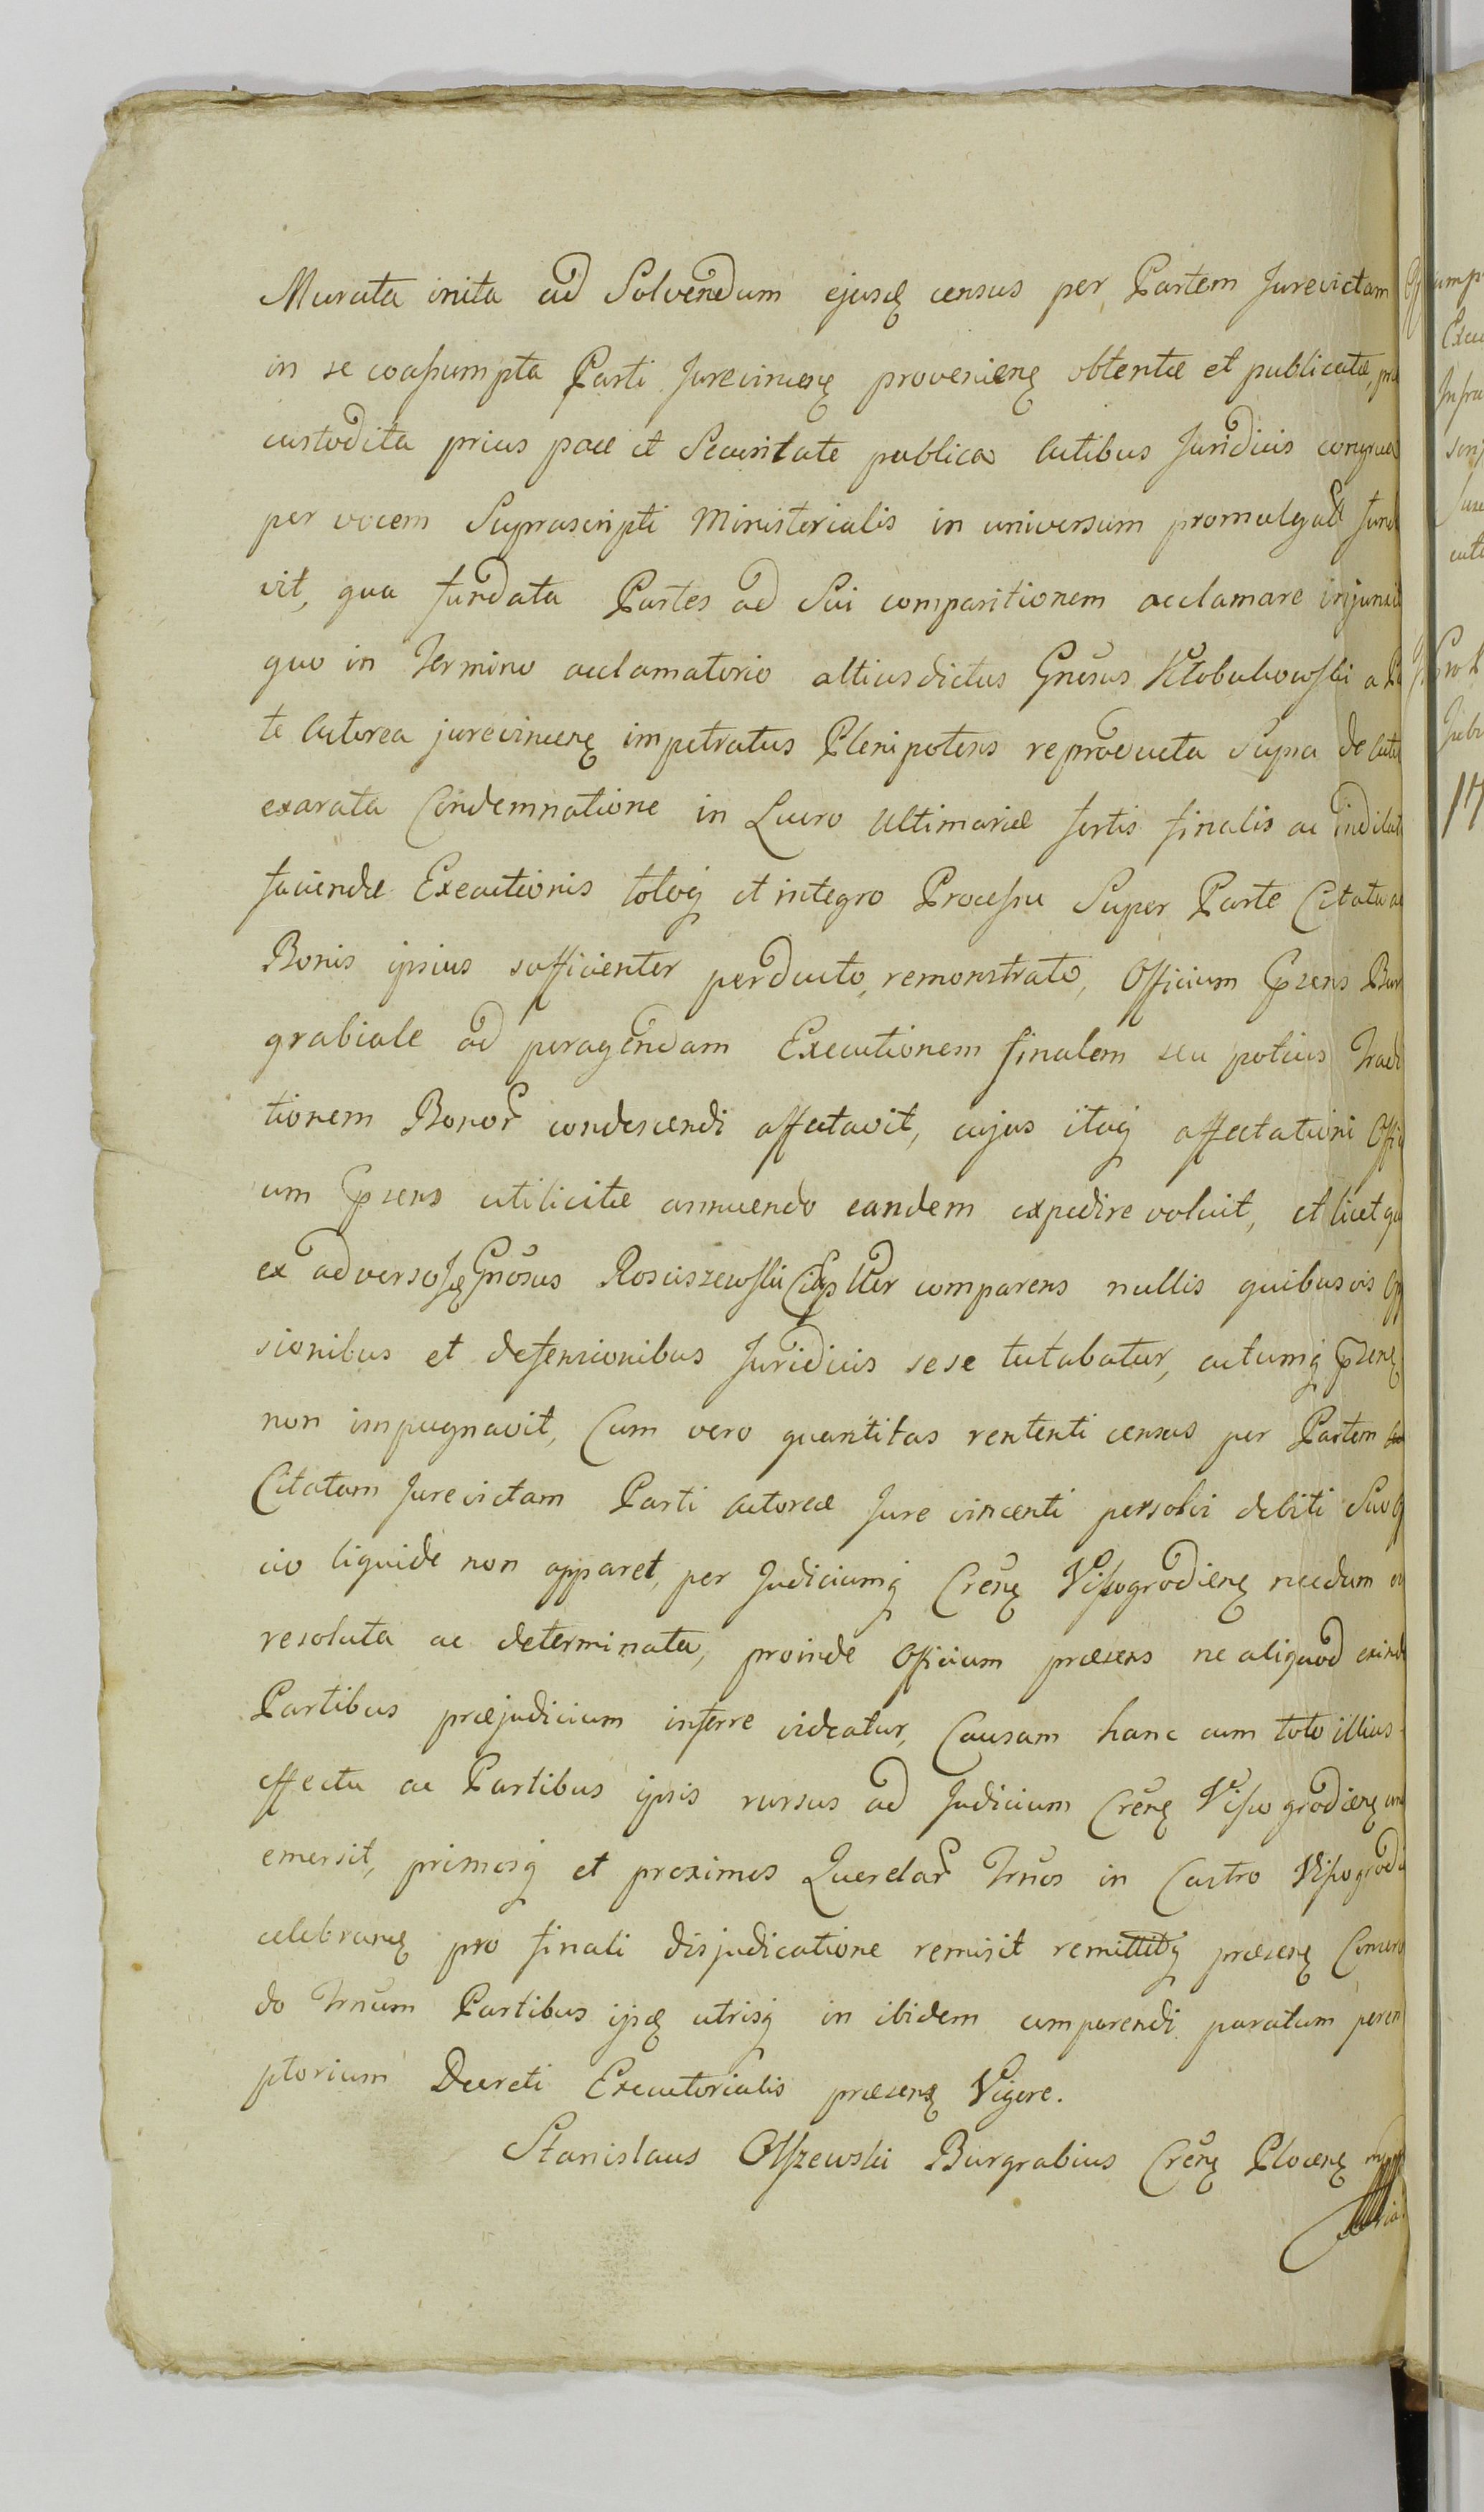 Murata inita ad Solvendum ejusq census per Partem Jurevictam
in se coassumpta Parti Jurevincenq provenienq obtentæ et publicatæ,
custodita prius pace et Securitate publica Actibus Juridicis congrua
per vocem Suprascripti Ministerialis in universum promulgat funda
vit, qua fundata Partes ad Sui comparitionem acclamare injunxit
quo in Termino acclamatorio altiusdictus Gnŏsus Kłobukowski a Pa
te Actorea jurevincenq impetratus Plenipotens reproducta Supra de actu
exarata Condemnatione in Lucro Ultimariæ sortis finalis ac indilat
faciendæ Executionis totoq et integro Processu Super Parte Citata ac
Bonis ipsius sufficienter perducto, remonstrato, Officium Pzens Bur
grabiale ad peragendam Executionem finalem seu potius Tradi
tionem Bonor condescendi affectavit, cujus itaq affectationi Offici
um Pzens utilicitæ annuendo eandem expedire voluit, et licet
ex adverso Gnŏsus Rosciszewski comparens nullis quibusvis
sionibus et defensionibus Juridicis sese tutabatur, actumq pzenq
non impugnavit, Cum vero quantitas rententi census per Partem
Citatam Jurevictam Parti Actoreæ Jure vincenti persolvi debiti Suo
cio liquide non apparet, per Judiciumq Crĕnq Vissogrodienq necdum
resoluta ac determinata, proinde Officium præsens ne aliquod exinde
Partibus præjudicium inferre videatur, Causam hanc cum toto illius
effectu ac Partibus ipsis rursus ad Judicium Crĕnq Vissogrodienq und
emersit, primosq et proximos Querelar Trños in Castro Vissogrodi
celebranq pro finali disjudicatione remisit remittitq præsenq Conserv
do Trñum Partibus ipsq utrisq in ibidem comparendi paratum perem
ptorium Decreti Executorialis præsenq Vigore.
Stanislaus Olszewski Burgrabius Crĕnq Plocenq mpp